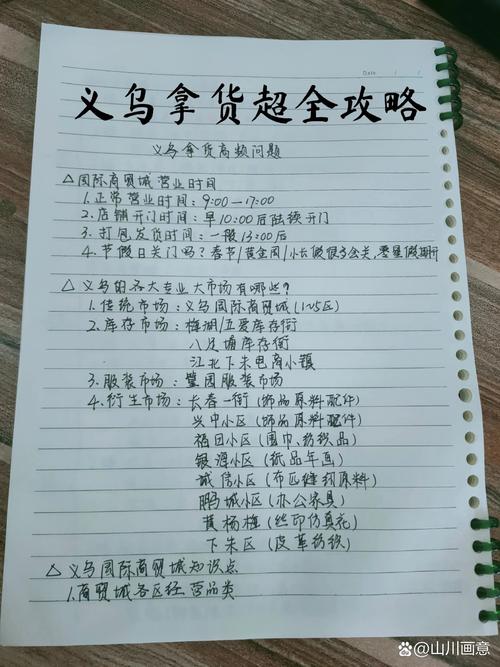 Date
义乌拿货超全攻略
义乌拿货高频问题
△国际商贸城营业时间
1.正常营业时间：9:00-17:00
2.店铺开门时间：早10:00后陆续开门
3.打包发货时间：一般13:00后
4.节假日关门吗？春节/黄金周/小长假很多会关，
△义乌的各大专业大市场有哪些？
1.传统市场：义乌国际商贸城(1~5区)
2.库存市场：梅湖/五爱库存街
八足塘库存街
江北下朱电商小镇
3.服装市场：篁园服装市场
4.衍生市场：长春一街(饰品原料配件)
兴中小区(饰品原料配件)
福田小区(围巾、纺织品)
银海小区(纸品年画)
诚信小区(布匹缝纫原料)
鹏城小区(办公家具)
黄杨梅(丝印仿真花)
下朱区(皮革纺织)
△义乌国际商贸城知识点
1.商贸城各区经营品类
@山川画意